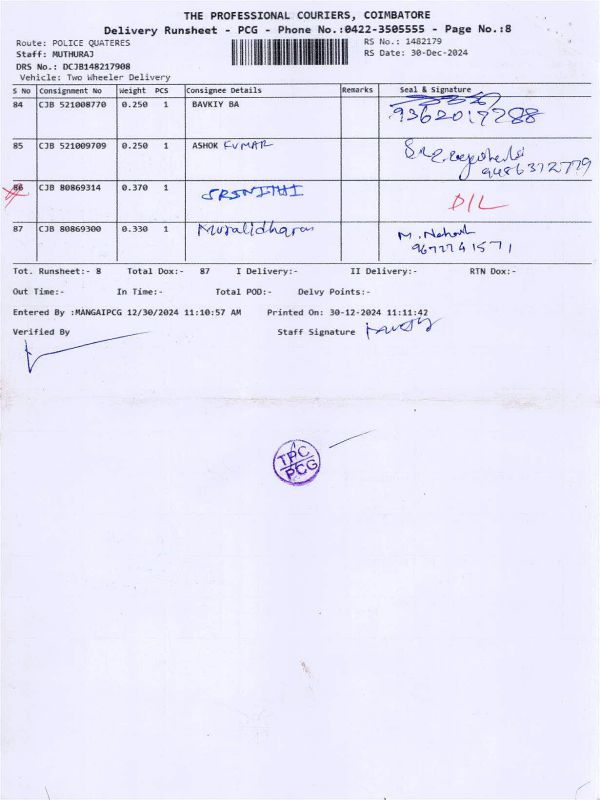 THE PROFESSIONAL COURIERS, COIMBATORE
Delivery Runsheet - PCG - Phone No.:0422-3505555 - Page No.:8
Route: POLICE QUATERES
RS No.: 1482179
Staff: MUTHURAJ
RS Date: 30-Dec-2024
DRS No.: DCJB148217908
Vehicle: Two Wheeler Delivery
S No Consignment No Weight PCS Consignee Details Remarks Seal & Signature
84 CJB 521008770 0.250 1 BAVKIY BA
85 CJB 521009709 0.250 1 ASHOK KUMAR
9486372779
86 CJB 80869314 0.370 1 SRSNITHI D/L
87 CJB 80869300 0.330 1 Muralidharan M.
Tot. Runsheet:- 8 Total Dox:- 87 I Delivery:- II Delivery:- RTN Dox:-
Out Time:- In Time:- Total POD:- Delvy Points:-
Entered By :MANGAIPCG 12/30/2024 11:10:57 AM Printed On: 30-12-2024 11:11:42
Verified By Staff Signature
TPC
PCG